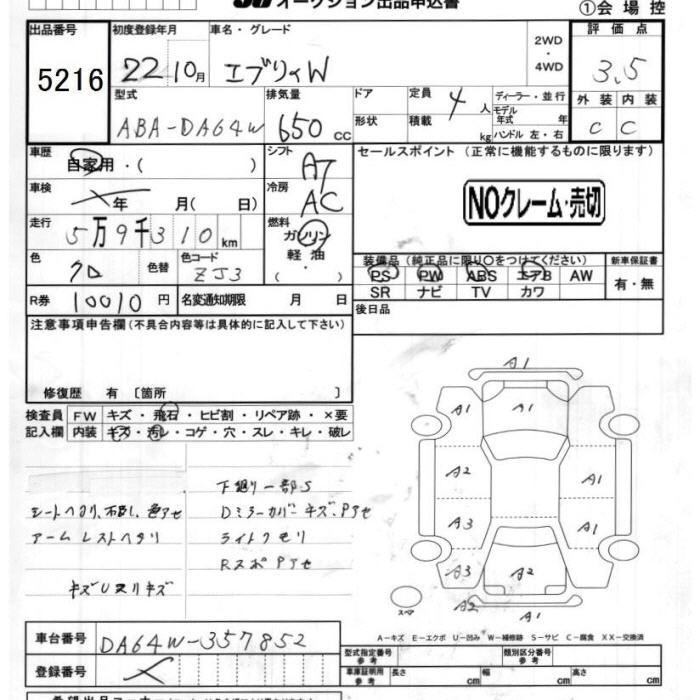 オークション出品申込書 ①会場控
出品番号 初度登録年月 車名・グレード 2WD・4WD 評価点
5216 22 10月 エブリィW 3.5
型式 排気量 ドア 定員 4人 ディーラー・並行 外装 内装
ABA-DA64W 650cc 形状 積載 kg モデル年式 年 ハンドル 左・右 C C
車歴 自家用・( ) シフト AT セールスポイント (正常に機能するものに限ります)
車検 年 月( 日) 冷房 AC NOクレーム・売切
走行 5万9千310km 燃料 ガソリン 軽油 ・( )
色 クロ 色替 色コード ZJ3 装備品 (純正品に限り○をつけてください) 新車保証書
PS PW ABS エアB AW 有・無
SR ナビ TV カワ
R券 10010円 名変通知期限 月 日 後日品
注意事項申告欄(不具合内容等は具体的に記入して下さい)
修復歴 有 〔箇所 〕
検査員 FW キズ・飛石・ヒビ割・リペア跡・×要
記入欄 内装 キズ・汚レ・コゲ・穴・スレ・キレ・破レ
下廻り一部S
シートヘタリ、 色アセ DミラーカバーキズPアセ
アームレストヘタリ ライトクモリ
RスポPアセ
キズUヌリキズ
A1
A1 A1
A2 A1
A3 A1
A3 A2
スペア A2 A1
A−キズ E−エクボ U−凹み W−補修跡 S−サビ C−腐食 XX−交換済
車台番号 DA64W-357852 型式指定番号 参考 類別区分番号 参考
登録番号 車庫証明用 参考 長さ cm 幅 cm 高さ cm